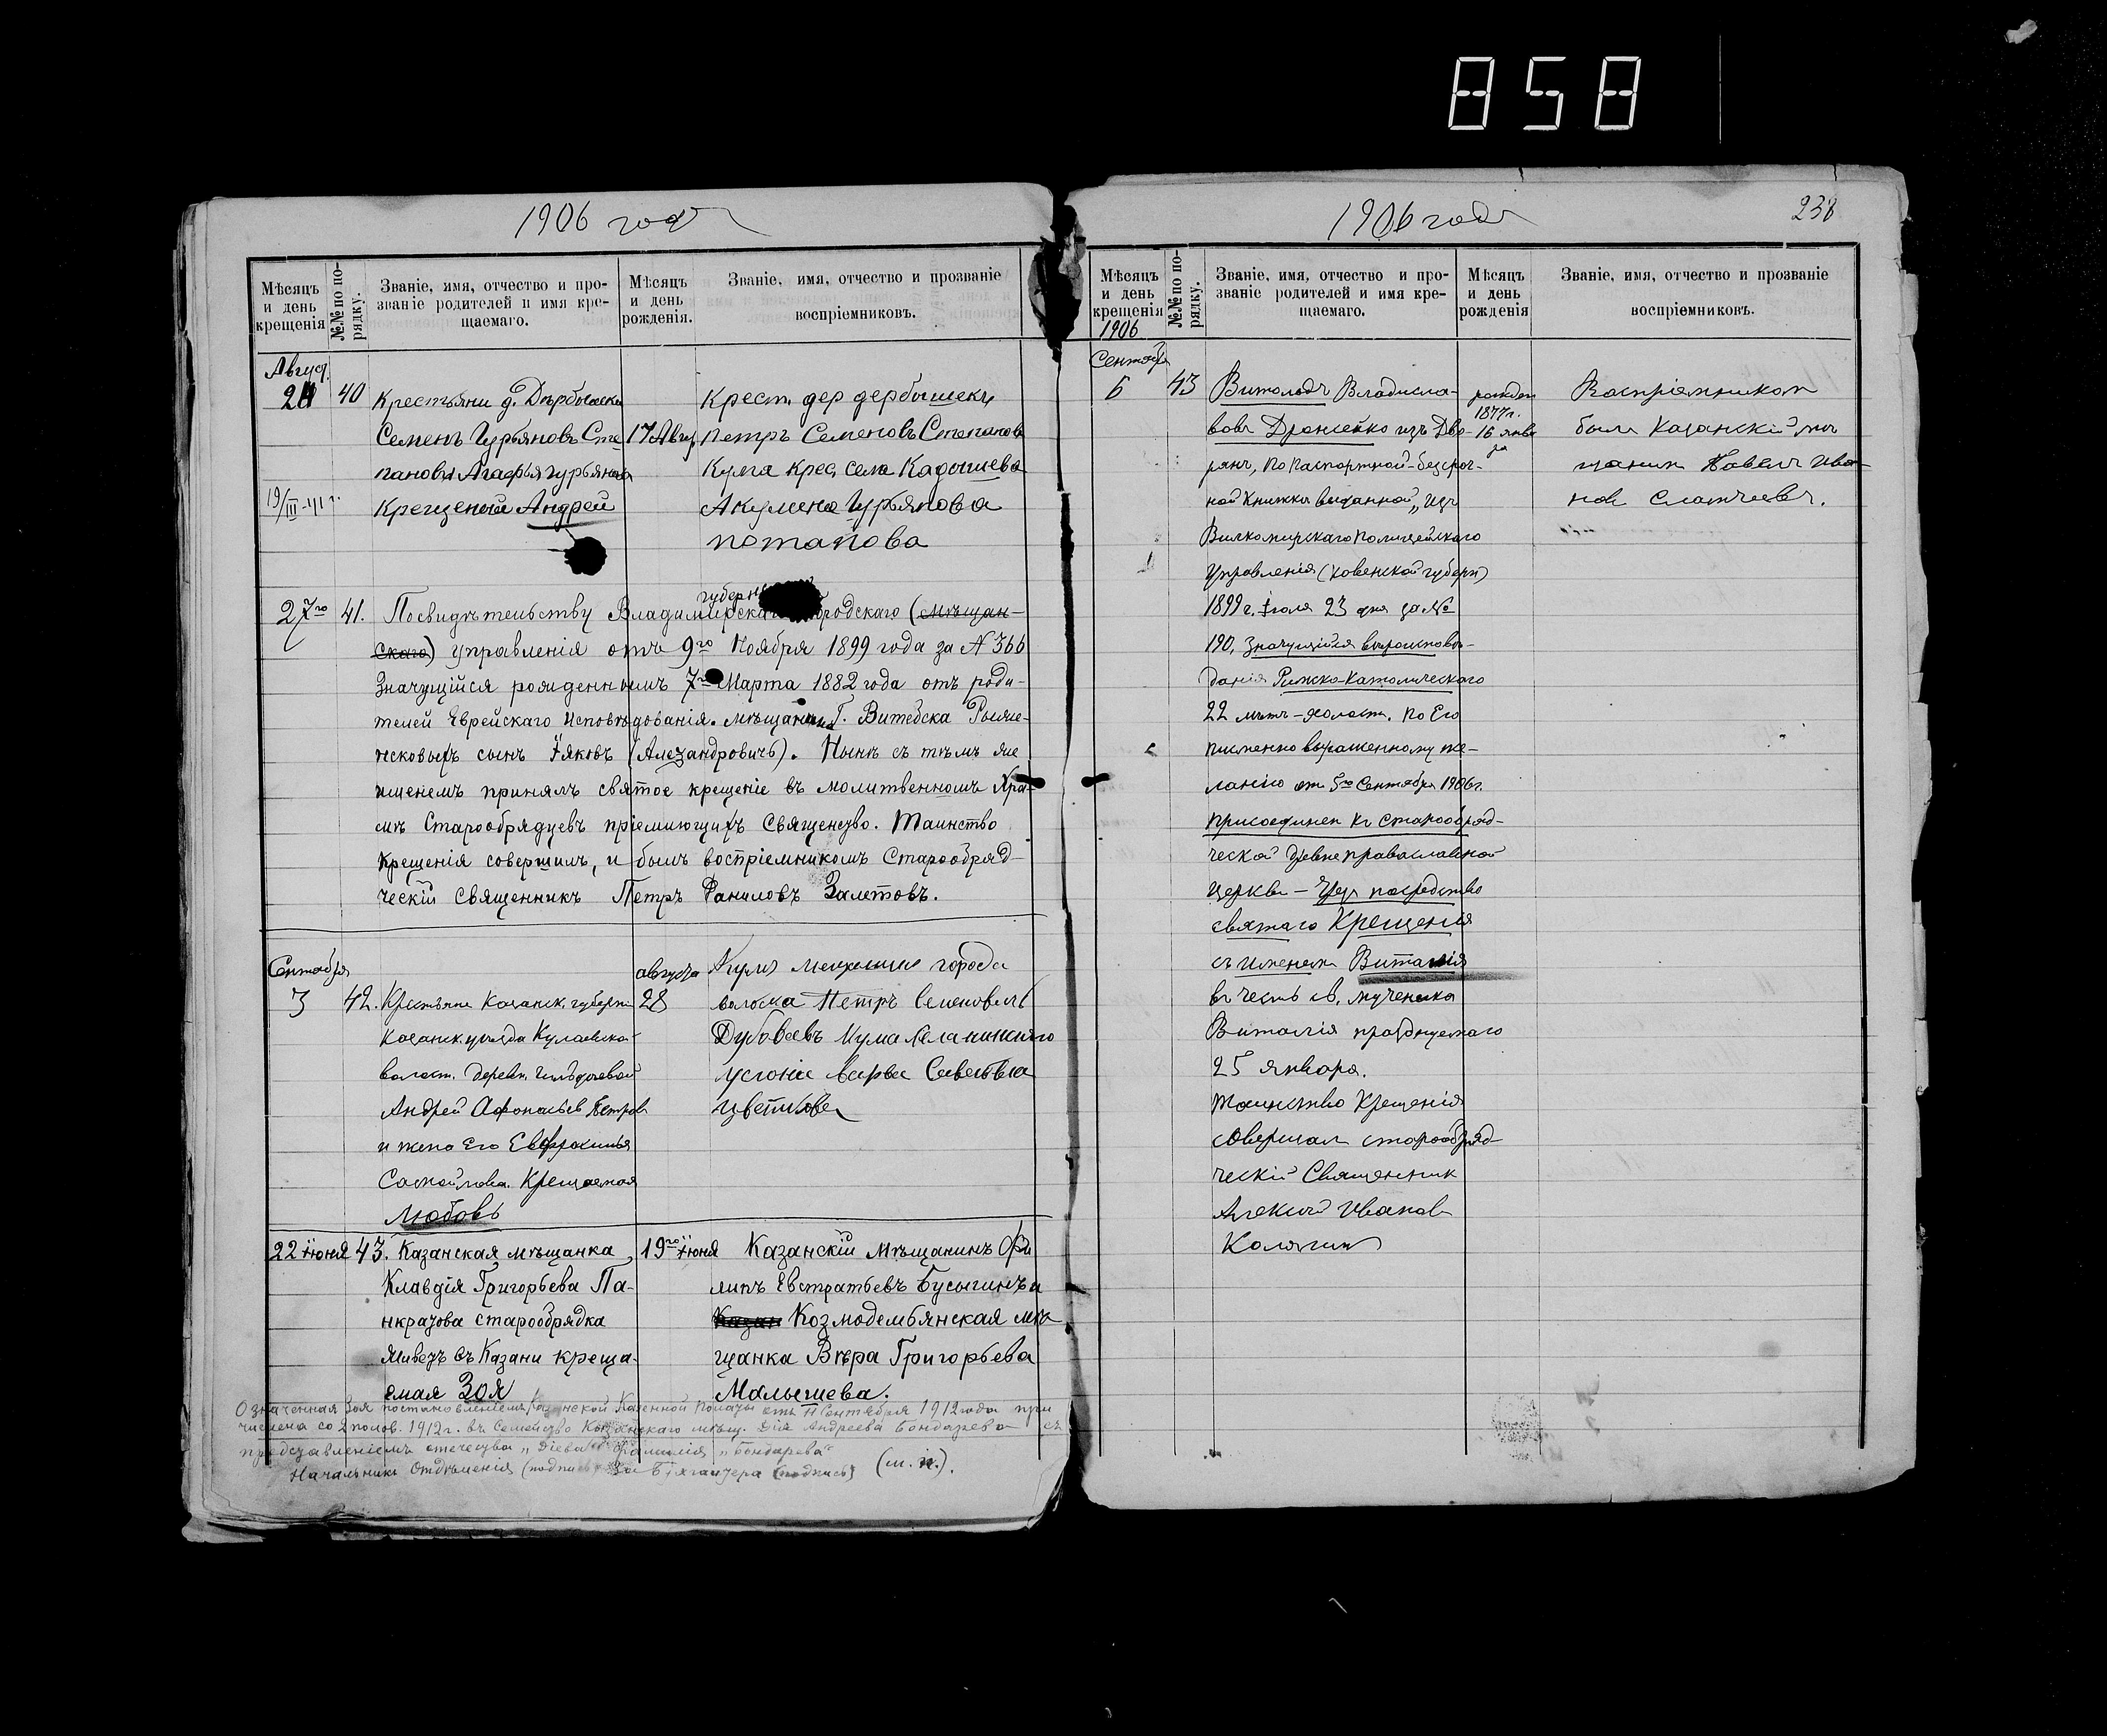 858
1906 годъ
Мѣсяцъ и день крещенія
№№ по порядку.
Званіе, имя, отчество и про-
званіе родителей и имя кре-
щаемаго.
Мѣсяцъ и день рожденія.
Званіе, имя, отчество и прозваніе
воспріемниковъ.
Август.
24 40 Крестьяни д. Дербышки
Семенъ Гурьяновъ Сте
пановъ Агафья Гурьянова
Крещеный Андрей
19/III-41 г.
17 Авг.
Крест. дер дербышекъ
Петръ Семеновъ Степанов
Кума крес села Кадышева
Акулина Гурьянова
Потапова
27го 41. По свидѣтельству Владимирскаго губернскаго городскаго (мѣщан-
скаго) управленія отъ 9го Ноября 1899 года за № 366
значущійся рожденнымъ 7го Марта 1882 года отъ роди-
телей Еврейскаго исповѣдованія. мѣщанина Г. Витебска
сынъ Іяковъ (Алезандровичъ). Нынѣ съ тѣмъ же
именемъ принялъ святое крещеніе въ молитвенномъ Хра-
мѣ Старообрядцевъ пріемлющихъ Священство. Таинство
крещенія совершилъ, и былъ воспріемникомъ Старообряд-
ческій священникъ Петръ Даниловъ Залетовъ.
Сентября
3 42. Крестьяне Казанск. губерн
Казанск. уѣзда Кулаевской
волост. деревн.
Андрей Афонасьев Петров
и жена Его Евфросинья
Самойлова. Крещаемая
Любовь
августа
28
Кумъ мещанин города
Петръ Семеновичъ
Дубовцевъ Кума
Варва Савельева
Цветкова
22 Іюня 43. Казанская мѣщанка
Клавдія Григорьева Па-
нкрацова старообрядка
живецъ съ Казани креща-
емая Зоя
19го Іюня
Казанскій мѣщанинъ Фи
липъ Евстратьевъ Бусыгинъ и
Казан Козмодемьянская мѣ
щанка Вѣра Григорьева
Малышева.
Означенная Зоя постановленіемъ Казанской Казенной Палаты отъ 11 Сентября 1912 года при
числена со 2 полов. 1912 г. въ семейство Казанскаго мѣщ. Дія Андреева Бондарева съ
предоставленіемъ отечества „Діева“ фамилія „Бондарева“
Начальникъ Отдѣленія (подпись) За Бухгалтера (подпись) (м. п.).
1906 годъ
238
Мѣсяцъ и день крещенія
№№ по порядку.
Званіе, имя, отчество и про-
званіе родителей и имя кре-
щаемаго.
Мѣсяцъ и день рожденія
Званіе, имя, отчество и прозваніе
воспріемниковъ.
1906
Сентябр
6 43 Витольдъ Владисла-
вовъ Дронсейко изъ Дво-
рянъ, по паспортной-безсроч-
ной книжки выданной „изъ
Вилкомирскаго полицейскаго
Управленія (Ковенской губерн)
1899 г. Іюля 23 дня за №
190, значущійся вѣроисповѣ-
данія Римско-Католическаго
22 лѣтъ-холост. По Его
писменно выраженному же-
ланію от 5го Сентября 1906 г.
присоединен къ старообряд-
ческой древлеправославной
церкви - чрез посредство
святаго Крещенія
съ именем Виталія
в честь св. мученика
Виталія празднуемаго
25 января.
Таинство Крещенія
совершал старообряд-
ческій Священник
Алексій Иванов
Калягин
рожден
1877 г.
16 янва
ря
Воспріемником
был Казанскій мѣ
щанин Павелъ Ива-
нов Слатчевъ.